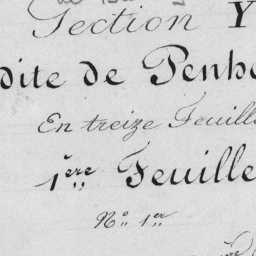 Section Y
dite de Penh
En treize Feuill
1ère Feuille
N° 1er